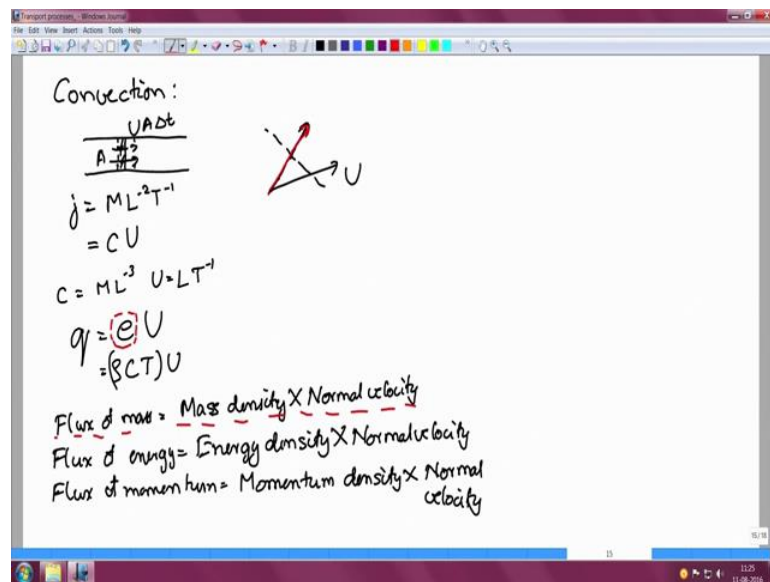 Transport processes_ - Windows Journal
File Edit View Insert Actions Tools Help
Convection:
UAΔt
A
j = ML⁻²T⁻¹
= CU
C = ML⁻³ U = LT⁻¹
q = e U
= (ρCT)U
U
Flux of mass = Mass density X Normal velocity
Flux of energy = Energy density X Normal velocity
Flux of momentum = Momentum density X Normal
velocity
15/18
15
11:25
11-08-2016